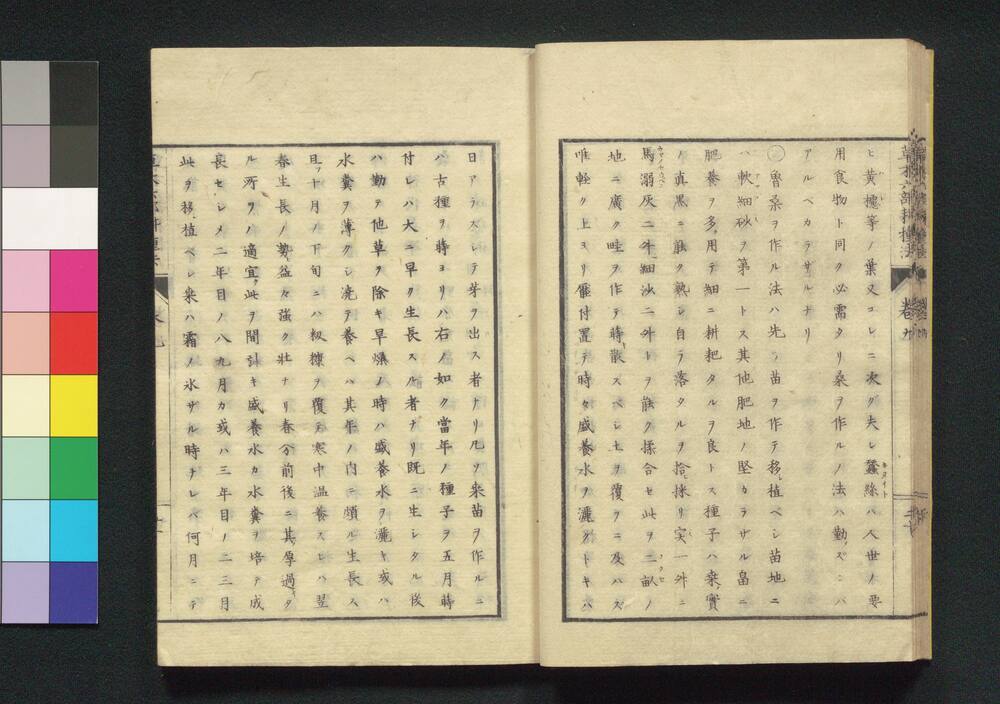 ヒ黄櫨等ノ葉又コレニ次グ夫レ蠶絲ハ人世ノ要
用食物ト同ク必需タリ桑ヲ作ルノ法ハ勤ズンバ
アルベカラザルナリ
○魯桑ヲ作ル法ハ先ヅ苗ヲ作テ移植ベシ苗地ニ
ハ軟細砂ヲ第一トス其他肥地ノ堅カラザル畠ニ
肥養ヲ多ク用テ細ニ耕耙タルヲ良トス種子ハ桑實
ノ真黒ニ能ク熟シ自ラ落タルヲ拾ヒ採リ実一升ニ
馬溺灰二升細沙二升トヲ能ク揉合セ此ヲ二畝ノ
地ニ廣ク畦ヲ作テ蒔散スベシ土ヲ覆フニ及ハズ
唯軽ク上ヨリ壓付置テ時々盛養水ヲ灑クトキハ
日アラズシテ芽ヲ出ス者ナリ凡ソ桒苗ヲ作ルニ
ハ古種ヲ蒔ヨリハ右ノ如ク當年ノ種子ヲ五月蒔
付レハ大ニ早ク生長スル者ナリ既ニ生シタル後
ハ勤テ他草ヲ除キ旱燥ノ時ハ盛養水ヲ灑キ或ハ
水糞ヲ薄クシ澆テ養ベハ其年ノ内ニ頗ル生長ス
且ツ十月ノ下旬ニハ籾糠ヲ覆テ寒中温養スレハ翌
春生長ノ勢益々強ク壯ナリ春分前後ニ其厚過タ
ル所ヲハ適宜此ヲ間引キ盛養水カ水糞ヲ培テ成
長セシメ二年目ノ八九月カ或ハ三年目ノ二三月
此ヲ移植ベシ桒ハ霜ノ氷サル時ナレバ何月ニテ
草木六部耕種法 卷九